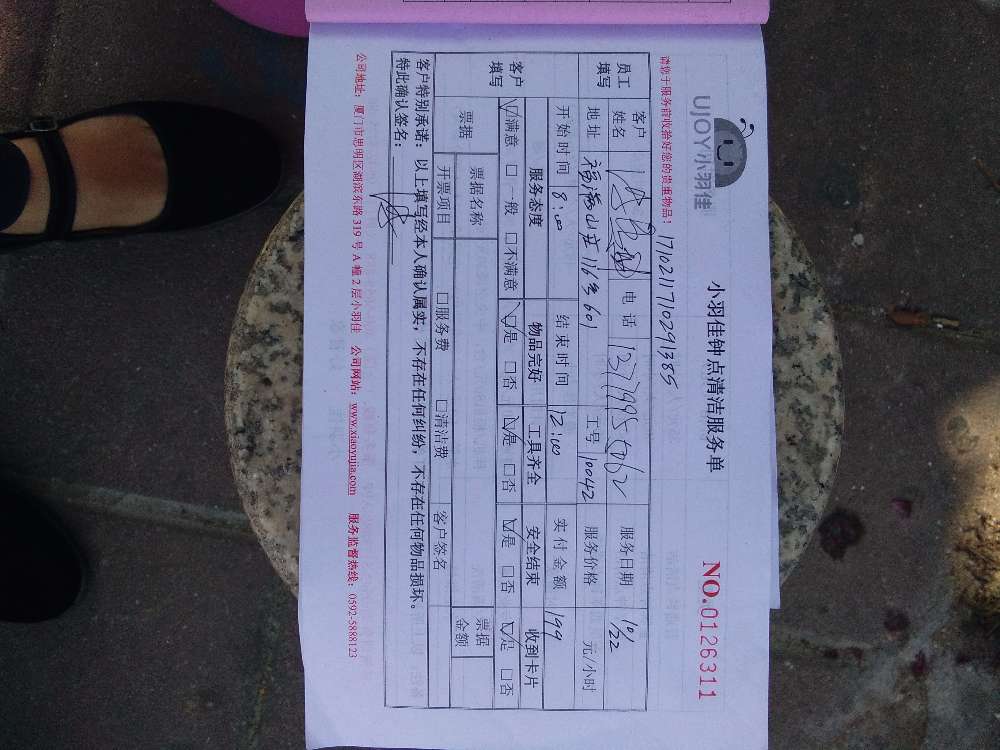 UJOY小羽佳
小羽佳钟点清洁服务单
NO.0126311
请您于服务前收拾好您的贵重物品！ 1710211710291385
员工填写 客户姓名 电话 服务日期 10/22
地址 福满山庄116号601 工号 10042 服务价格 元/小时
开始时间 8:00 结束时间 12:00 实付金额 199
客户填写 服务态度 物品完好 工具齐全 安全结束 收到卡片
☑满意 □一般 □不满意 ☑是 □否 ☑是 □否 ☑是 □否 ☑是 □否
票据 票据名称 票据金额
开票项目 □服务费 □清洁费 客户签名
客户特别承诺：以上填写经本人确认属实，不存在任何纠纷，不存在任何物品损坏。
特此确认签名：
公司地址：厦门市思明区湖滨东路319号A幢2层小羽佳 公司网站：www.xiaoyujia.com 服务监督热线：0592-5888123